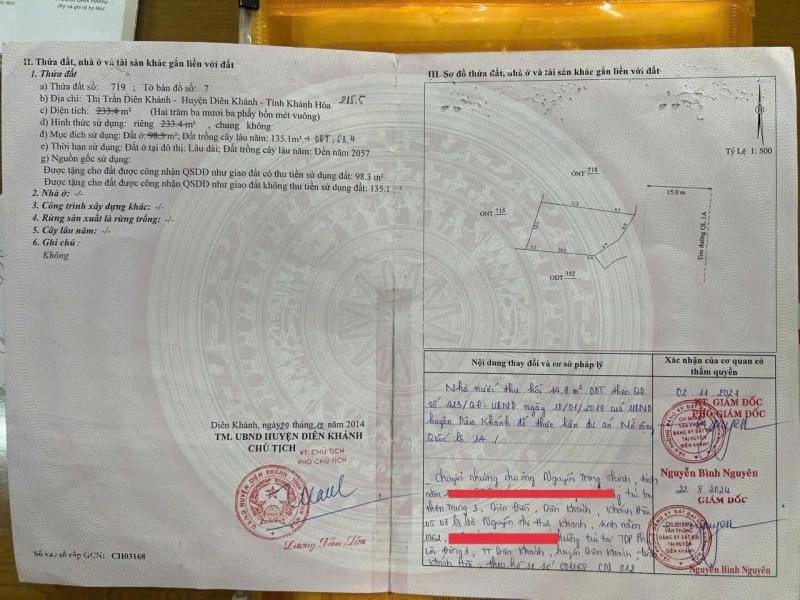 II. Thửa đất, nhà ở và tài sản khác gắn liền với đất
1. Thửa đất
a) Thửa đất số: 719 ; Tờ bản đồ số: 7
b) Địa chỉ: Thị Trấn Diên Khánh - Huyện Diên Khánh - Tỉnh Khánh Hòa
218.5
c) Diện tích: 233.4 m² (Hai trăm ba mươi ba phẩy bốn mét vuông)
d) Hình thức sử dụng: riêng 233.4 m² , chung không
đ) Mục đích sử dụng: Đất ở: 98.3 m²; Đất trồng cây lâu năm: 135.1m² + ODT: 83,4
e) Thời hạn sử dụng: Đất ở tại đô thị: Lâu dài; Đất trồng cây lâu năm: Đến năm 2057
g) Nguồn gốc sử dụng:
Được tặng cho đất được công nhận QSDĐ như giao đất có thu tiền sử dụng đất: 98.3 m²
Được tặng cho đất được công nhận QSDĐ như giao đất không thu tiền sử dụng đất: 135.1
2. Nhà ở: -/-
3. Công trình xây dựng khác: -/-
4. Rừng sản xuất là rừng trồng: -/-
5. Cây lâu năm: -/-
6. Ghi chú :
Không
Diên Khánh, ngày 29 tháng 12 năm 2014
TM. UBND HUYỆN DIÊN KHÁNH
CHỦ TỊCH
KT. CHỦ TỊCH
PHÓ CHỦ TỊCH
Lương Tấn Tốn
Số vào sổ cấp GCN: CH03168
III. Sơ đồ thửa đất, nhà ở và tài sản khác gắn liền với đất
Tỷ Lệ 1: 500
ONT 718
ONT 715
ODT 352
15.0 m
Tim đường QL 1A
Nội dung thay đổi và cơ sở pháp lý
Xác nhận của cơ quan có thẩm quyền
Nhà nước thu hồi 14,9 m² ODT theo QĐ
số 423/QĐ-UBND ngày 18/01/2013 của UBND
huyện Diên Khánh để thực hiện dự án Mở rộng
Quốc lộ 1A /
02 11 2021
KT. GIÁM ĐỐC
PHÓ GIÁM ĐỐC
CHI NHÁNH
VĂN PHÒNG
ĐĂNG KÝ ĐẤT ĐAI
TẠI HUYỆN
DIÊN KHÁNH
Nguyễn Bình Nguyên
Chuyển nhượng cho ông Nguyễn Trọng Thịnh, sinh
năm
thôn Trung 3, Diên Điền, Diên Khánh, Khánh Hòa
và bà Nguyễn Thị Thu Khanh, sinh năm
1962, thường trú tại TDP Phú
Lộc Đông 3, TT Diên Khánh, huyện Diên Khánh, tỉnh
Khánh Hòa, theo hồ sơ số CN 012
22 8 2024
GIÁM ĐỐC
CHI NHÁNH
VĂN PHÒNG
ĐĂNG KÝ ĐẤT ĐAI
TẠI HUYỆN
DIÊN KHÁNH
Nguyễn Bình Nguyên